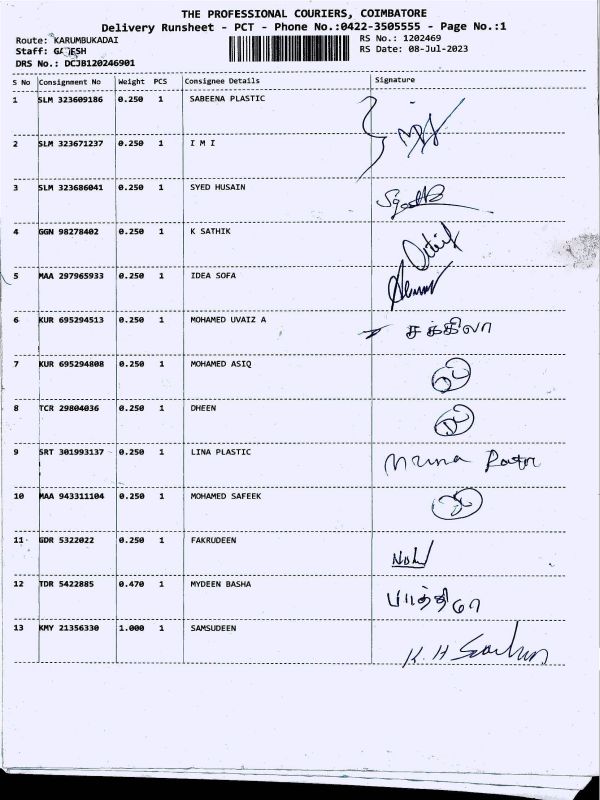 THE PROFESSIONAL COURIERS, COIMBATORE
Delivery Runsheet - PCT - Phone No.:0422-3505555 - Page No.:1
Route: KARUMBUKADAI
RS No.: 1202469
Staff: GANESH
RS Date: 08-Jul-2023
DRS No.: DCJB120246901
S No Consignment No Weight PCS Consignee Details Signature
1 SLM 323609186 0.250 1 SABEENA PLASTIC
2 SLM 323671237 0.250 1 I M I
3 SLM 323686041 0.250 1 SYED HUSAIN
4 GGN 98278402 0.250 1 K SATHIK
5 MAA 297965933 0.250 1 IDEA SOFA
6 KUR 695294513 0.250 1 MOHAMED UVAIZ A சக்கிலா
7 KUR 695294808 0.250 1 MOHAMED ASIQ
8 TCR 29804036 0.250 1 DHEEN
9 SRT 301993137 0.250 1 LINA PLASTIC
10 MAA 943311104 0.250 1 MOHAMED SAFEEK
11 GDR 5322022 0.250 1 FAKRUDEEN
12 TDR 5422885 0.470 1 MYDEEN BASHA
13 KMY 21356330 1.000 1 SAMSUDEEN K. H